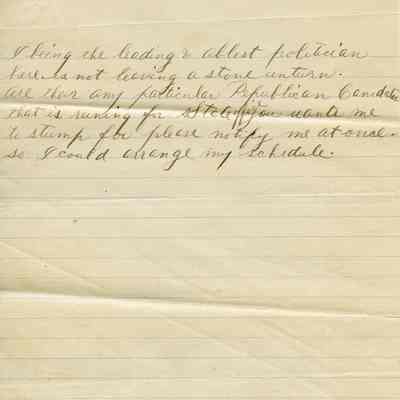 I being the leading & ablest politician
here is not leaving a stone unturn.
are thar any particular Republican Canidate
that is runing for State if you wants me
to stump for please notify me at once.
so I could arrange my schedule.